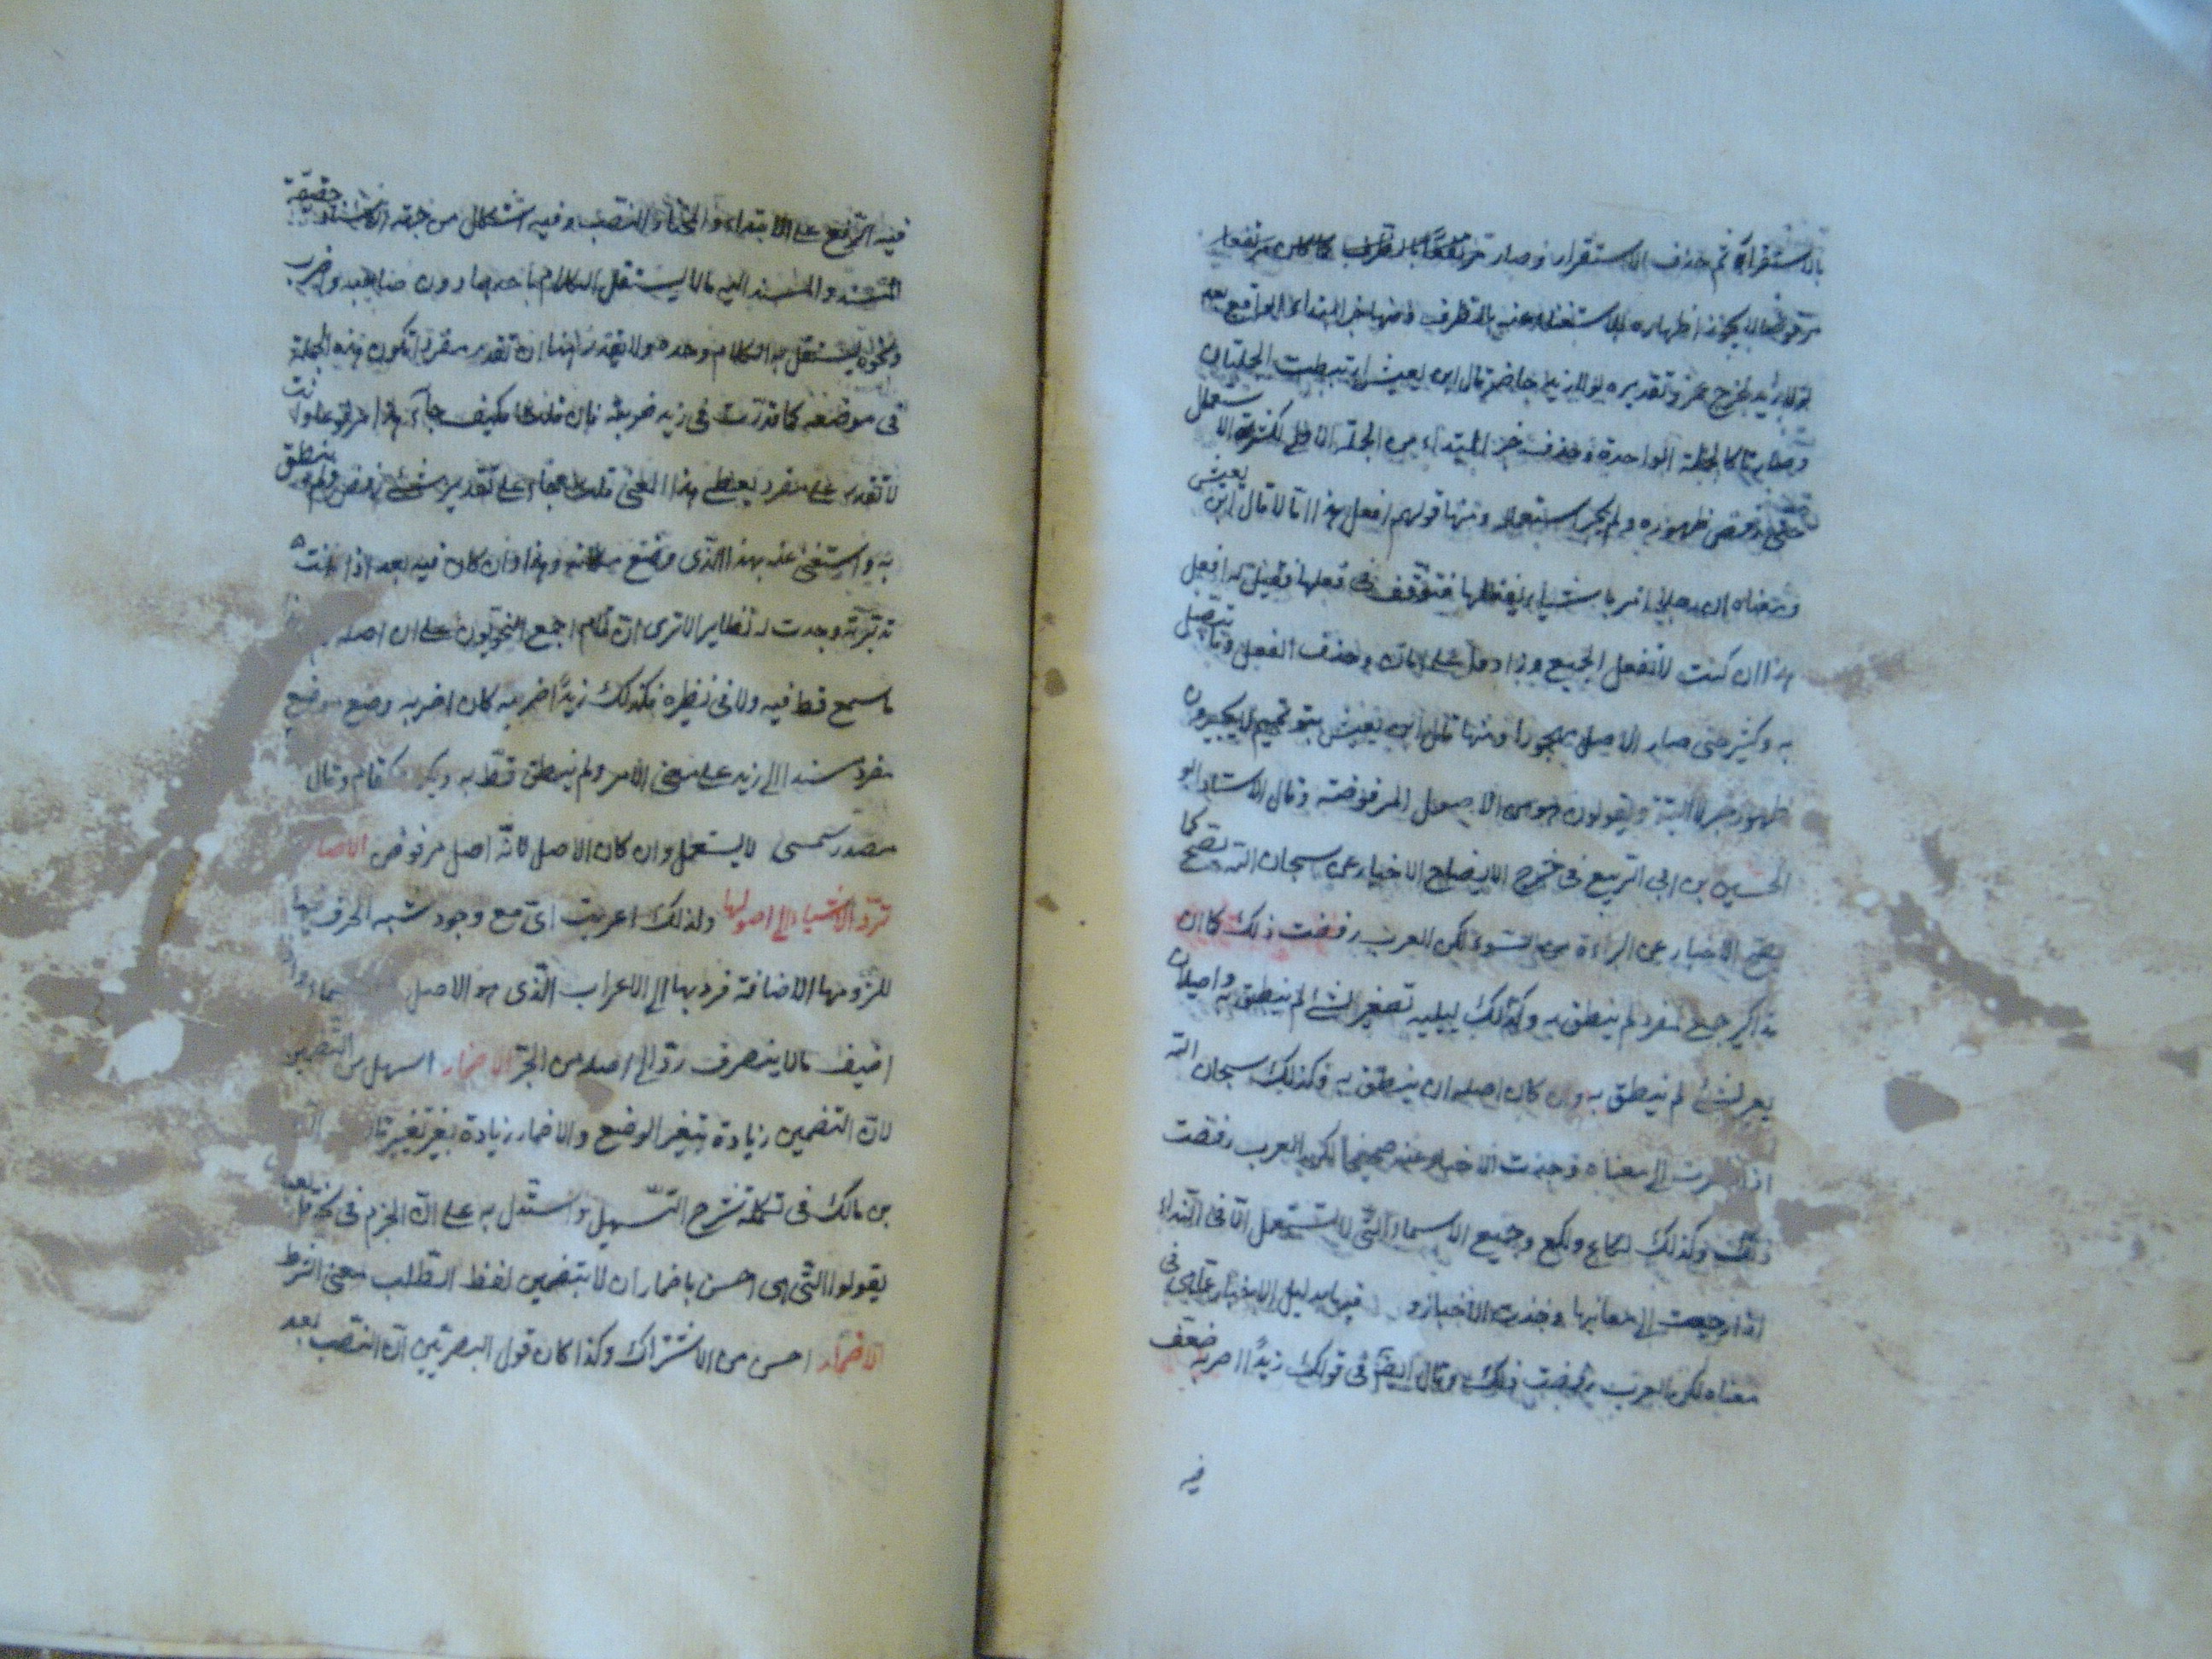 بالاستقرار ثم حذف الاستقرار وصار مرتفعا بالظرف كما كان مرتفعا
مرفوضا لا يجوز اظهاره للاستغناء عنه بالظرف ومنها خبر المبتداء الواقع بعد
لولا زيد لخرج عمرو تقديره لولا زيد حاضر قال ابن يعيش ارتبطت الجملتان
وصارتا كالجملة الواحدة وحذف خبر المبتداء من الجملة الاولى لكثرة الاستعمال
حتى رفض ظهوره ولم يجز استعماله ومنها قولهم افعل هذا امّا لا قال ابن يعيش
ومعناه ان رجلا امر باشياء يفعلها فتوقف في فعلها فقيل له افعل
هذا ان كنت لا تفعل الجميع وزادوا على ان ما وحذف الفعل وما يتصل
به وكثر حتى صار الاصل مهجورا ومنها قال ابن يعيش بنو تميم لا يجيزون
ظهور خبر لا البتة ويقولون هو من الاصول المرفوضة وقال الاستاد ابو
الحسين بن ابي الربيع في شرح الايضاح الاخبار عن سبحان الله يصح كما
يصح الاخبار عن البراءة من السوء لكن العرب رفضت ذلك كما ان
مذاكير جمع لمفرد لم ينطق به وكذلك لييلية تصغير لشئ لم ينطق به واصيلان
لشئ لم ينطق به وان كان اصله ان ينطق به وكذلك سبحان الله
اذا نظرت الى معناه وجدت الاخبار عنه صحيحا لكن العرب رفضت
ذلك وكذلك لكاع ولكع وجميع الاسماء التي لا تستعمل الا في النداء
اذا رجعت الى معانيها وجدت الاخبار فيها بدليل الاخبار عما هي في
معناه لكن العرب رفضت ذلك وقال ايضا في قولك زيدا اضربه ضعف
فيه
فيه الرفع على الابتداء والمختار النصب وفيه اشكال من جهة الاسناد حقيقة
المسند والمسند اليه ما لا يستقل الكلام باحدهما دون صاحبه واضرب
ونحوه يستقل به الكلام وحده ولا يقدر هنا ان تقدير مفردا تكون هذه الجملة
في موضعه كما قدرت في زيد ضربته فان قلت فكيف جاء هذا مرفوعا وانت
لا تقدره على مفرد يعطى هذا المعنى قلت جاء على تقدير شئ رفض ولم ينطق
به واستغنى عنه بهذا الذي وضع مكانه وهذا وان كان فيه بعد اذا انت
تدبرته وجدت له نظاير الا ترى ان قام اجمع النحويون على ان اصله
ما سمع قط فيه ولا في نظيره فكذلك زيدا اضربه كان اضربه وضع موضع
مفرد مسند الى زيد على معنى الامر ولم ينطق قط به كقام وقال
مصدر عسى لا يستعمل وان كان الاصل لانه اصل مرفوض الاضا
ترد الاشياء الى اصولها ولذلك اعربت اي مع وجود شبه الحرف فيها
للزومها الاضافة فردها الى الاعراب الذي هو الاصل
اضيف ما لا ينصرف رد الى اصله من الجر الاضمار اسهل من التضمين
لان التضمين زيادة بتغير الوضع والاضمار زيادة بغير تغير قاله
بن مالك في تكملة شرح التسهيل واستدل به على ان الجزم في نحو قل لعبادي
يقولوا التي هي احسن باضمار ان لا بتضمين لفظ الطلب معنى الشرط
الاضمار احسن من الاشتراك وكذا كان قول البصريين ان النصب بعد